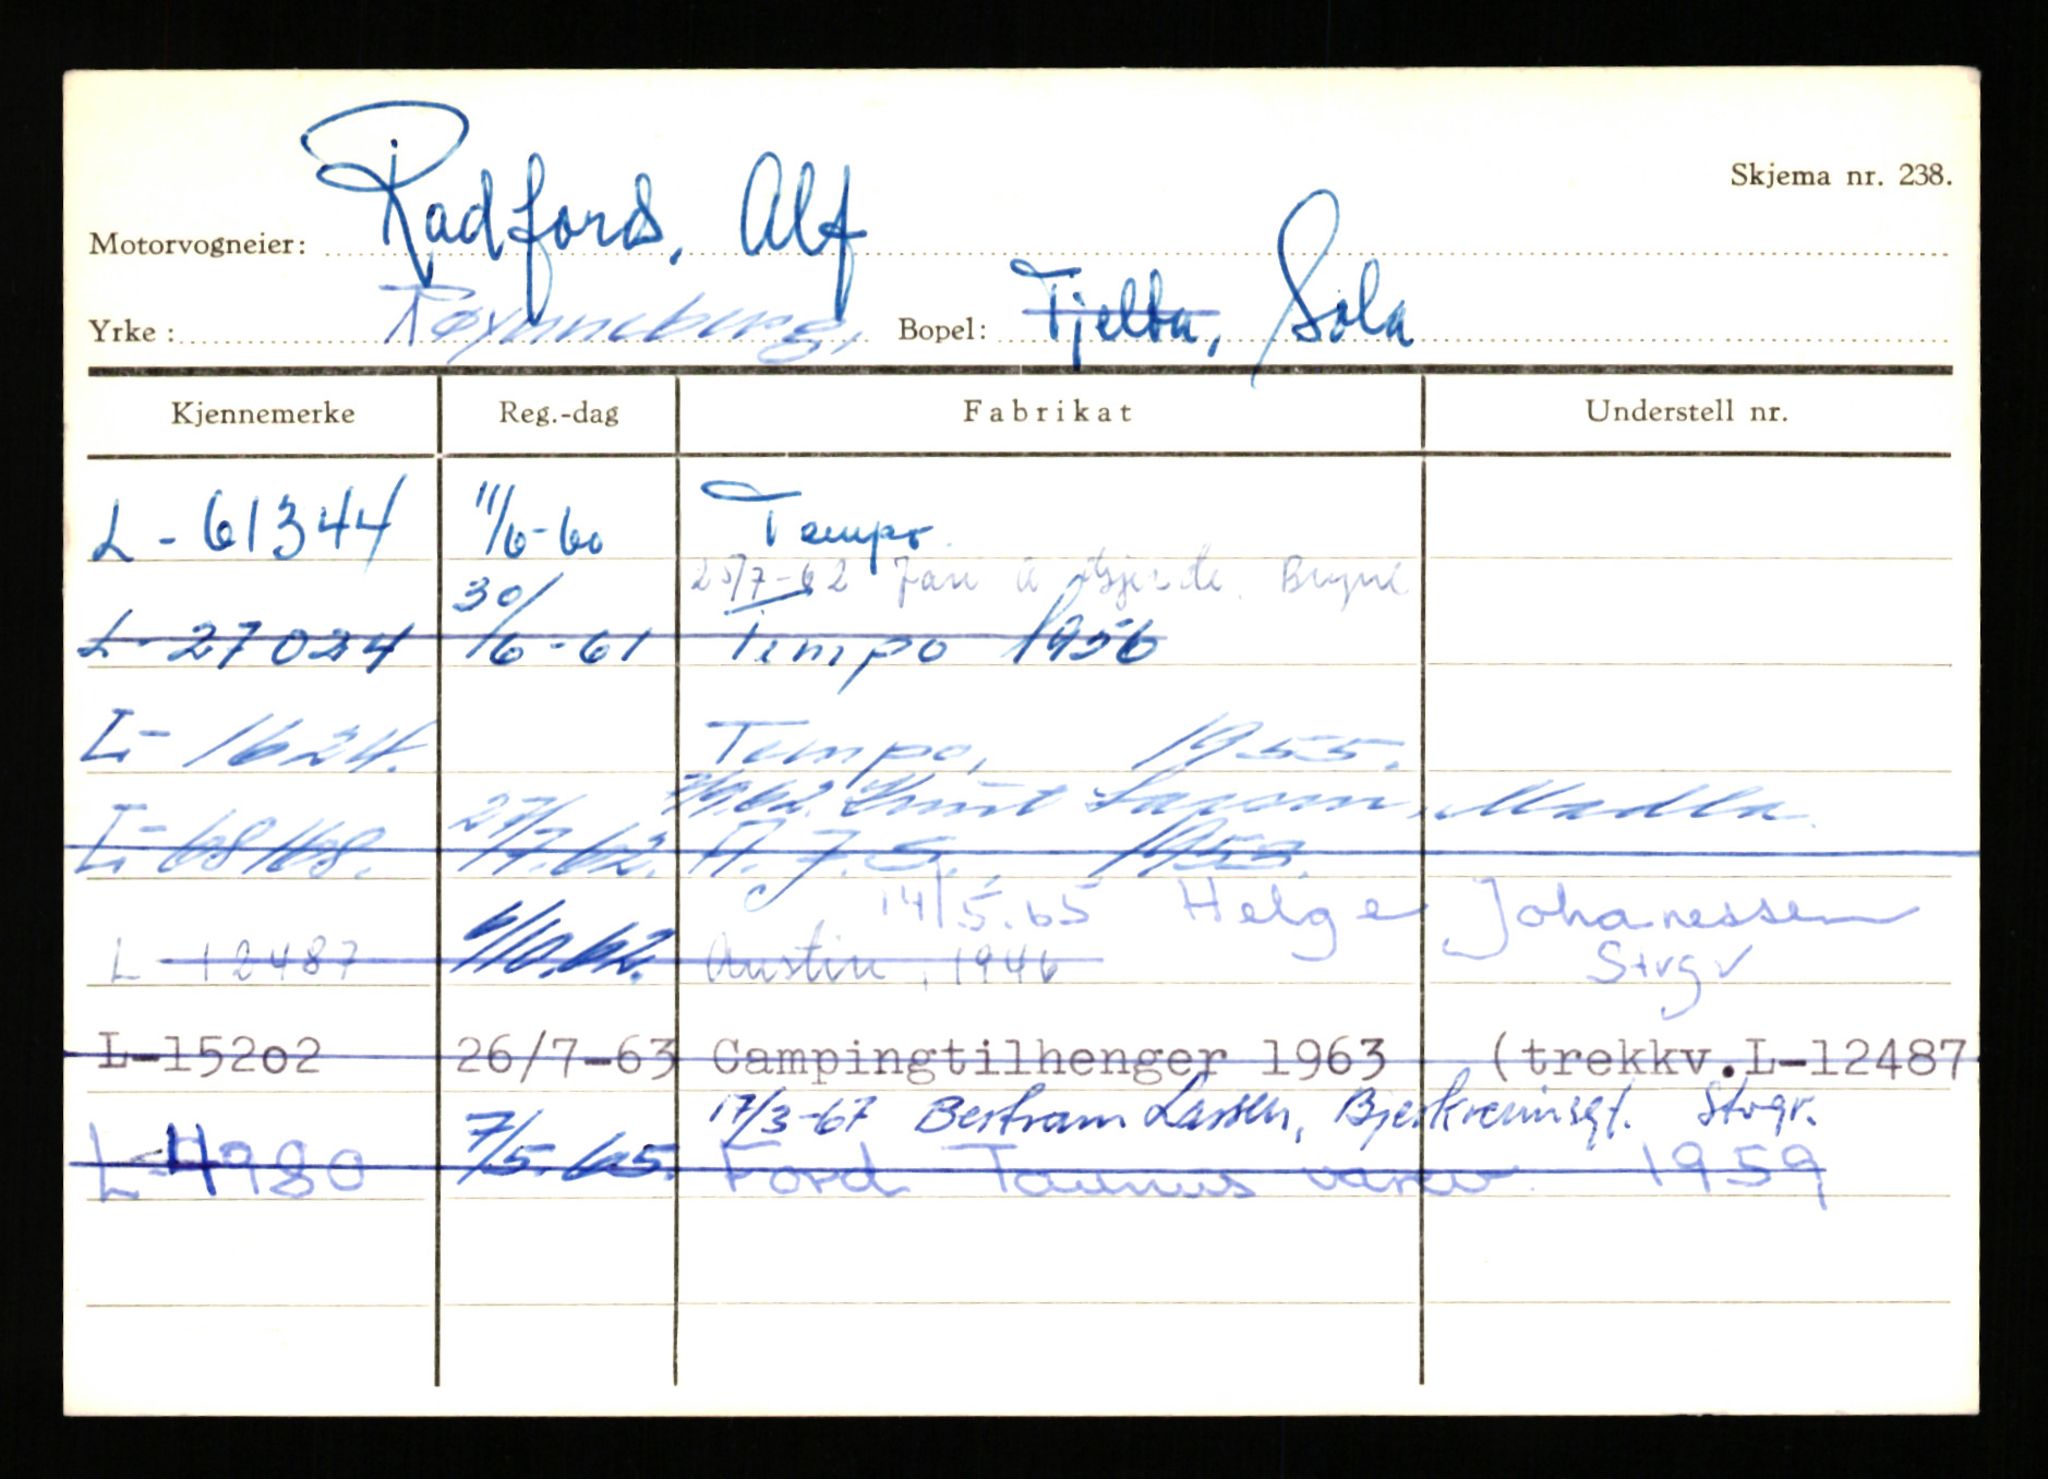 Skjema nr. 238.
Motorvogneier: Radford, Alf
Yrke: Røyneberg, Bopel: Tjelta, Sola
Kjennemerke Reg.-dag Fabrikat Understell nr.
L - 61344 11/6-60 Tempo
25/7-62 Jan A Bryne
L- 27024 30/6-61 Tempo 1956
L- 1624. Tempo, 1955.
Knut Larsen, Madla
L- 68168. 27/7.62. A.J.S. 1953.
14/5.65 Helge Johanessen
Strgv
L - 12487 6/10.62. Austin, 1946
L-15202 26/7-63 Campingtilhenger 1963 (trekkv.L-12487
17/3-67 Bertram Larsen, Bjerkreimsgt. Stvgr.
L-4980 7/5.65. Ford Taunus varev. 1959